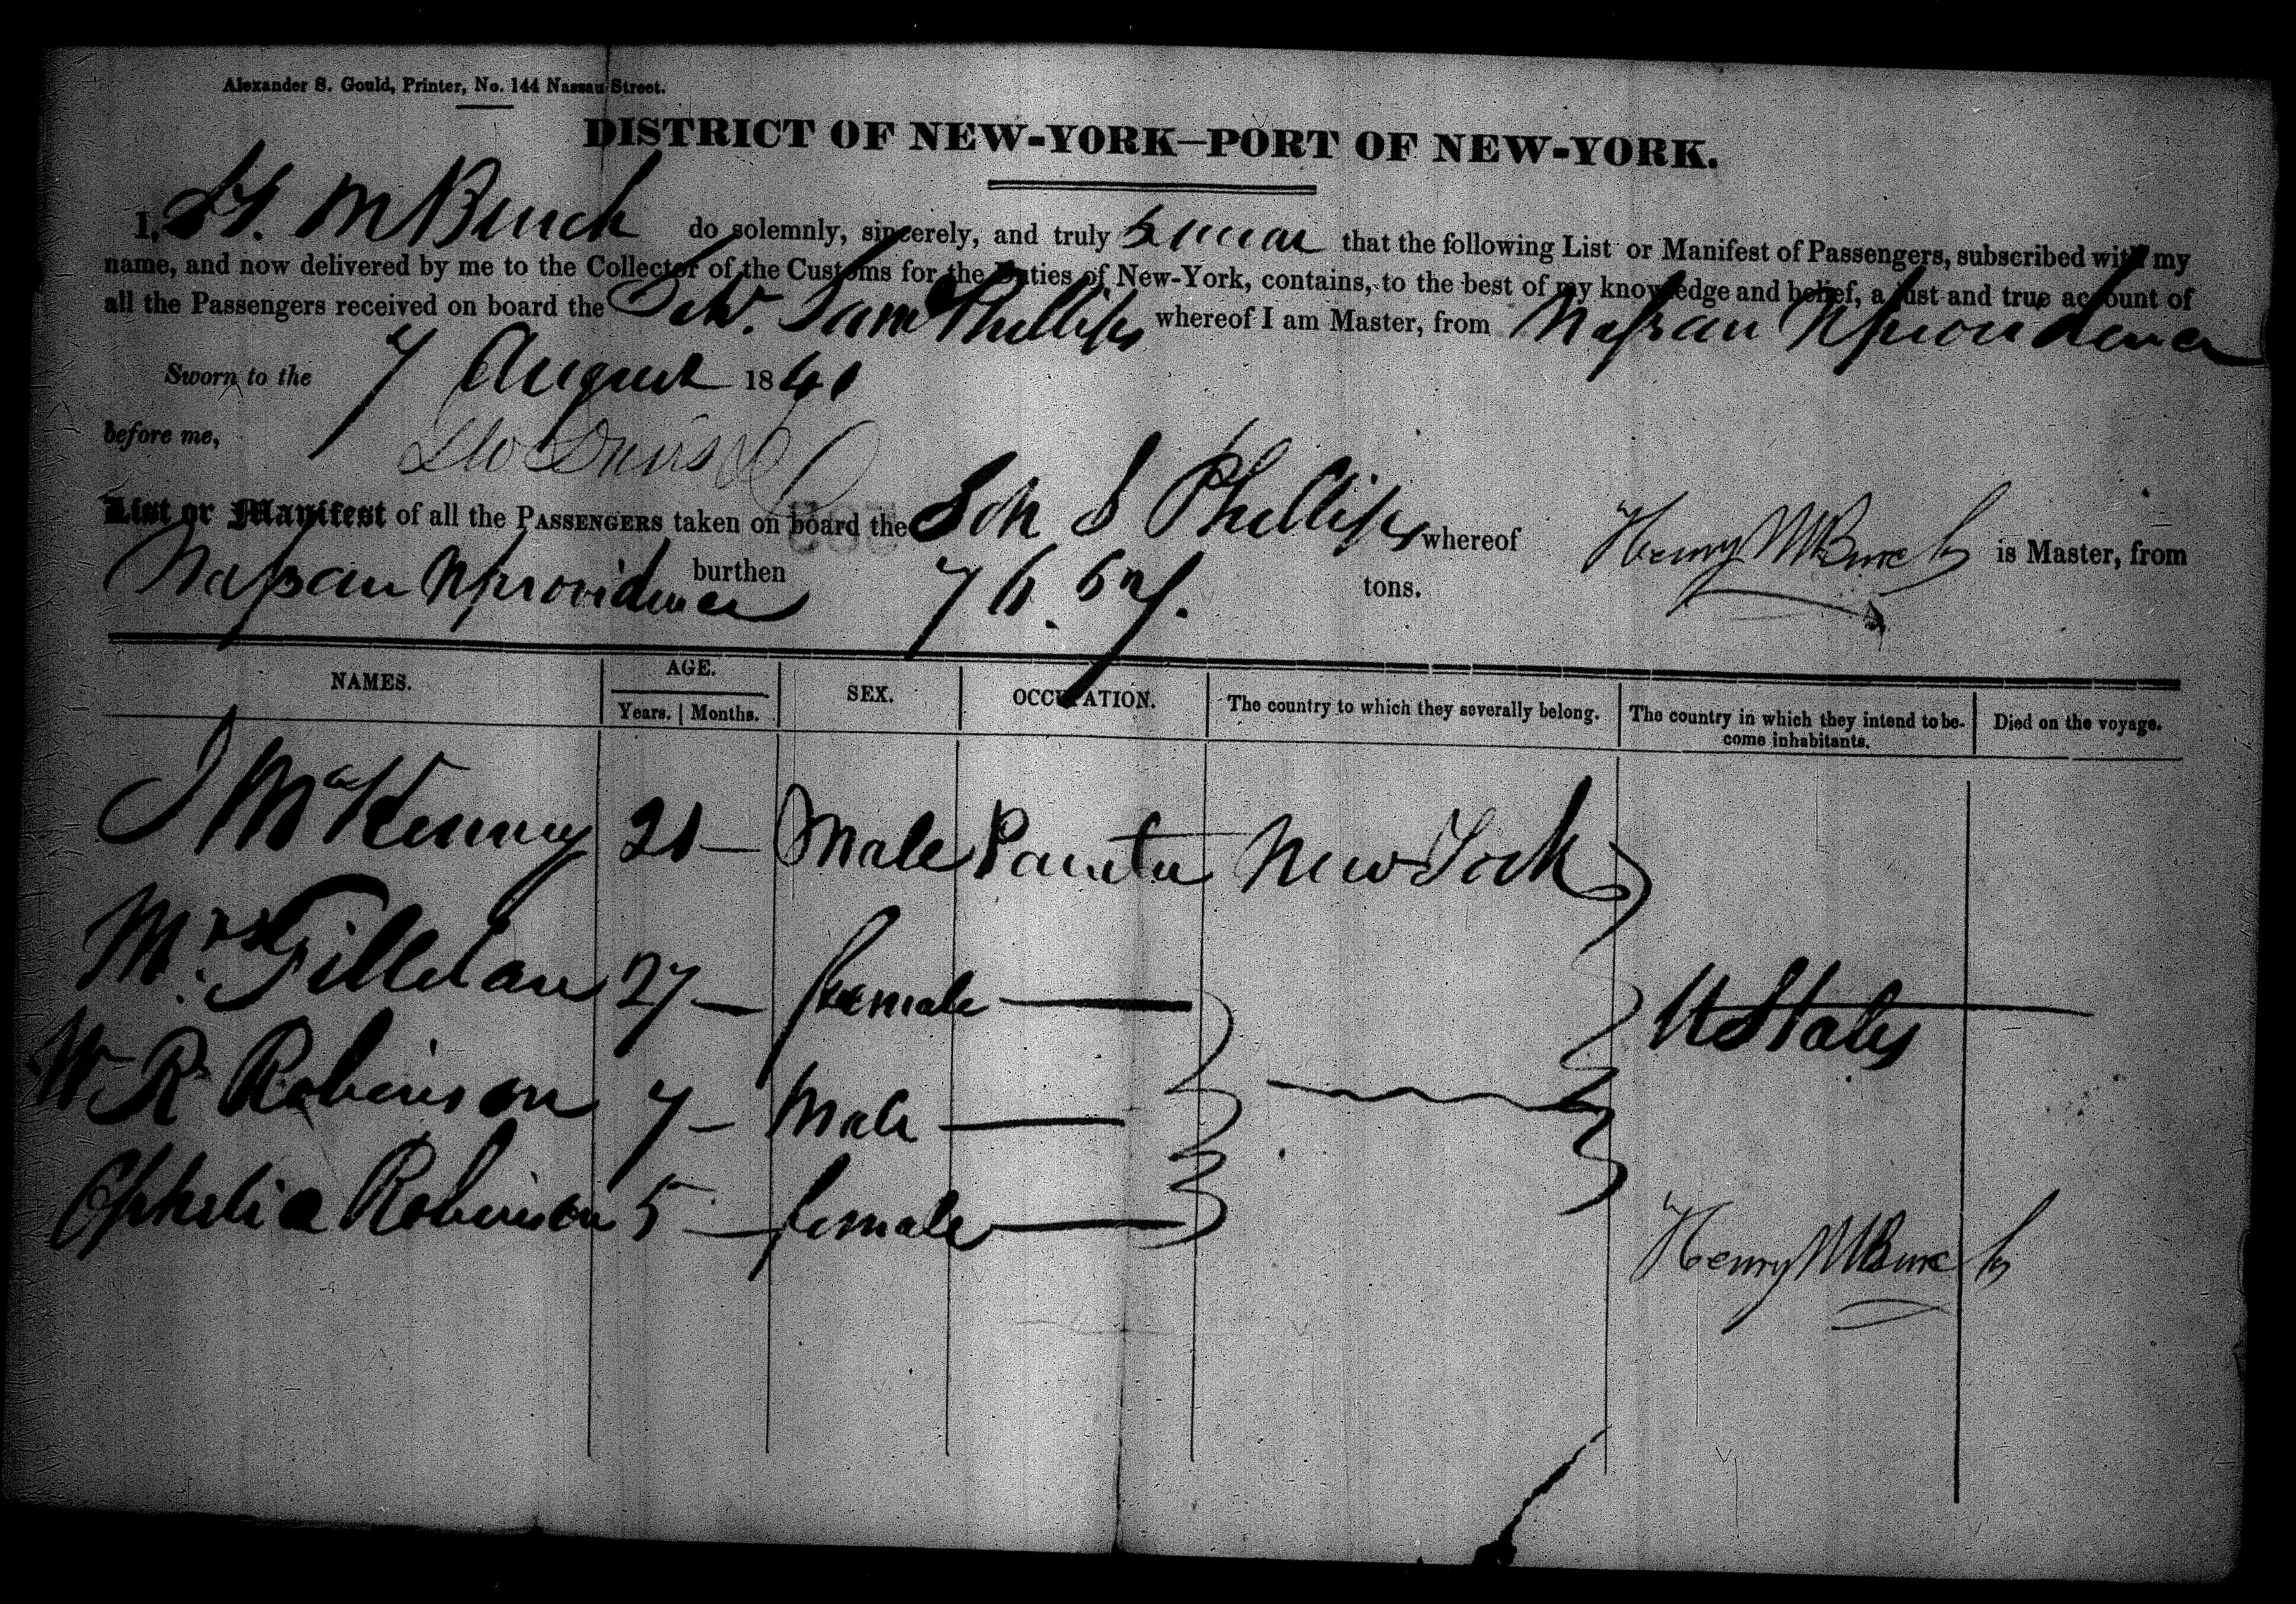 Alexander S. Gould, Printer, No. 144 Nassau Street.
DISTRICT OF NEW-YORK—PORT OF NEW-YORK.
I, H. M Burch do solemnly, sincerely, and truly swear that the following List or Manifest of Passengers, subscribed with my
name, and now delivered by me to the Collector of the Customs for the Duties of New-York, contains, to the best of my knowledge and belief, a just and true account of
all the Passengers received on board the Schr. Saml Phillips whereof I am Master, from Nassau N providence
Sworn to the 7 August 1841
before me,
List or Manifest of all the PASSENGERS taken on board the Sch S Phillips whereof Henry M Burch is Master, from
Nassau N providence burthen 76.57. tons.
NAMES. AGE. SEX. OCCUPATION. The country to which they severally belong. The country in which they intend to be- Died on the voyage.
Years. Months. come inhabitants.
J McKenny 21 — Male Painter New York
Mrs Tilldan 27 — female —
U States
W R Robinson 7 — Male —
Ophelia Robinson 5 — female —
Henry M Burch